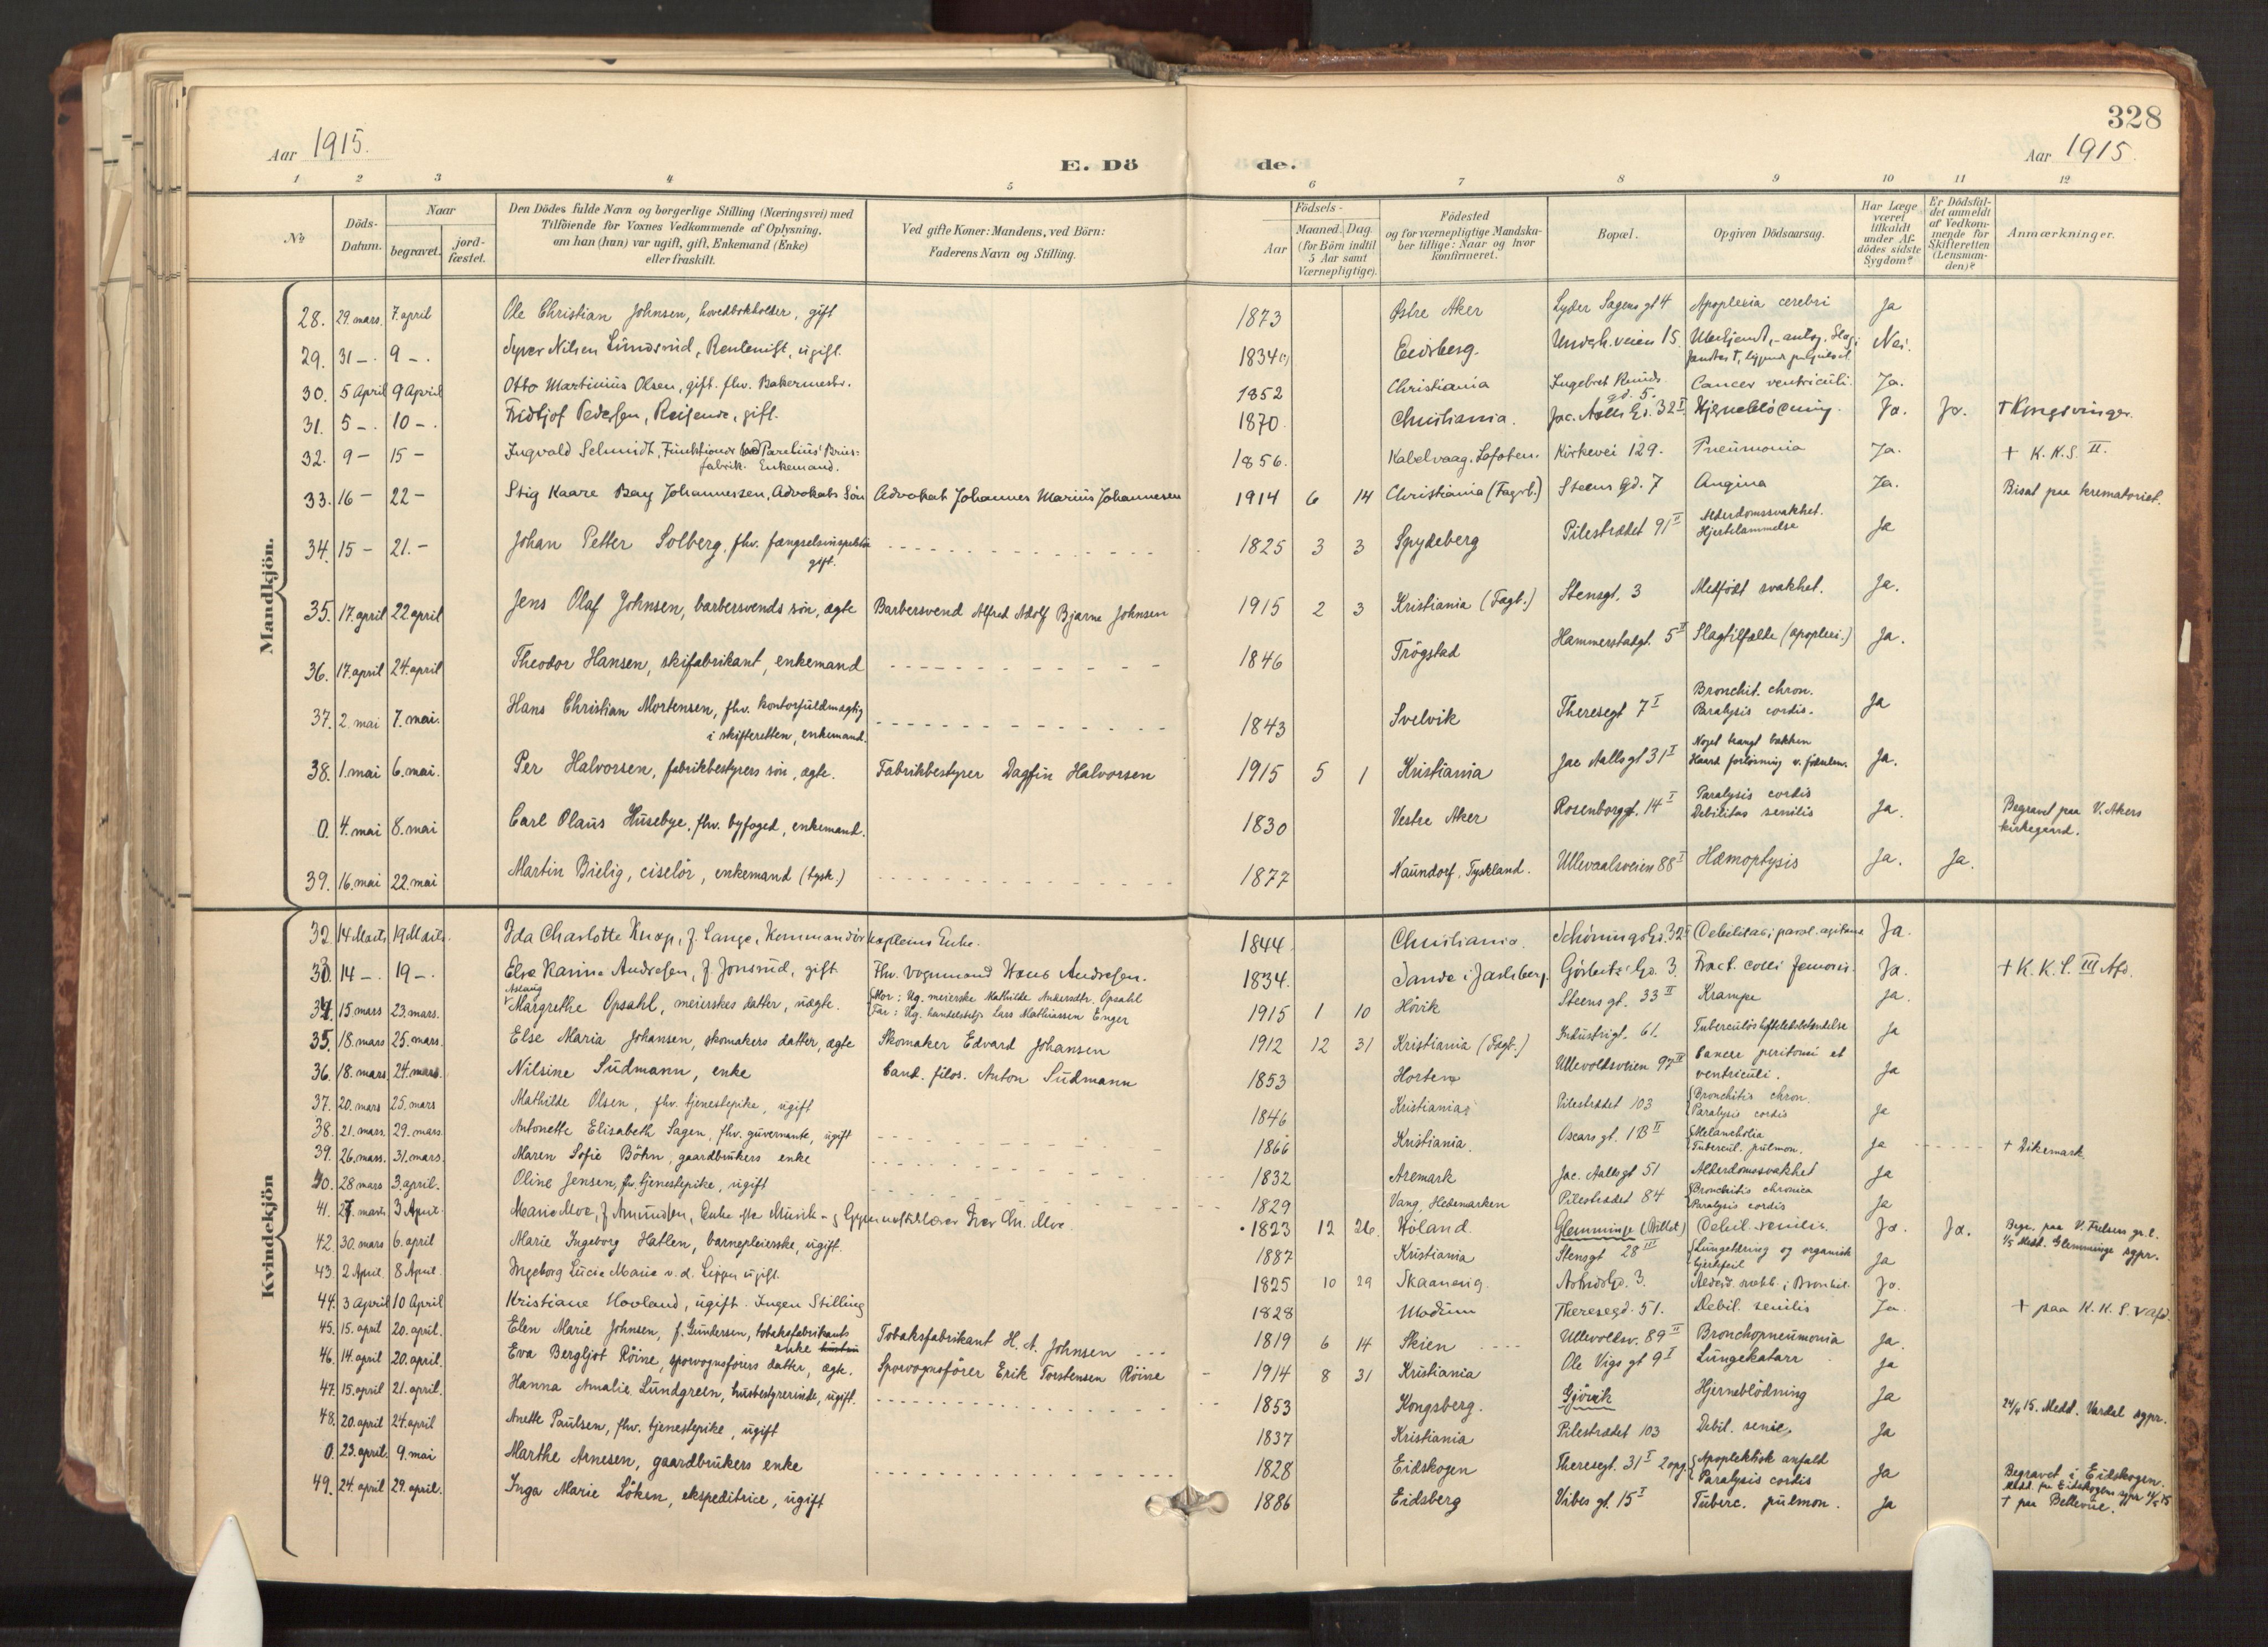 328
Aar 1915.
E. Dö de.
Aar 1915.
1 2 3 4 5 6 7 8 9 10 11 12
No
Döds-Datum.
Naar
begravet. jordfæstet.
Den Dödes fulde Navn og borgerlige Stilling (Næringsvei) med Tilföiende for Voxnes Vedkommende af Oplysning, om han (hun) var ugift, gift, Enkemand (Enke) eller fraskilt.
Ved gifte Koner: Mandens, ved Börn: Faderens Navn og Stilling.
Födsels-
Aar Maaned. Dag. (for Börn indtil 5 Aar samt Værnepligtige).
Födested og for værnepligtige Mandskaber tillige: Naar og hvor konfirmeret.
Bopæl.
Opgiven Dödsaarsag.
Har Læge været tilkaldt under Afdödes sidste Sygdom?
Er Dödsfaldet anmeldt af Vedkommende for Skifteretten (Lensmanden)?
Anmærkninger.
Mandkjön.
28. 29. mars. 7. april Ole Christian Johnsen, hovedbokholder, gift 1873 Østre Aker Lyder Sagens gt 4 Apoplexia cerebri Ja
29. 31 –. 9 –. Syver Nilsen Lundsrud, Rentenist, ugift. 1834 Eidsberg. Underh. veien 15. Nei.
30. 5 April 9 April Otto Martinius Olsen, gift. fhv. Bakermester. 1852 Christiania Ingebret gd. 5. Cancer ventriculi. Ja.
31. 5 –. 10 –. Fridtjof Pedersen, Reisende, gift. 1870 Christiania. Jac. Aalls Gd. 32 I Hjerneblödning. Ja. Ja. † Kongsvinger
32. 9 – 15 – Ingvald Schmidt, Funktionær ved Parelius' Brusfabrik. Enkemand. 1856. Kabelvaag. Lofoten. Kirkevei 129. Pneumonia Ja. † K. K. S. II.
33. 16 – 22 – Stig Kaare Bay Johannessen, Advokats Sön Advokat Johannes Marius Johannesen 1914 6 14 Christiania (Fagerb.) Steens Gd. 7 Angina Ja. Bisat paa krematoriet.
34. 15 – 21. – Johan Petter Solberg, fhv. fængselsinspektör gift. 1825 3 3 Spydeberg Pilestrædet 91 II Alderdomssvakhet. Hjertelammelse Ja
35. 17. april 22. april Jens Olaf Johnsen, barbersvends sön, ægte Barbersvend Alfred Adolf Bjarne Johnsen 1915 2 3 Kristiania (Fagb.) Stensgt. 3 Medfödt svakhet. Ja.
36. 17. april 24. april Theodor Hansen, skifabrikant, enkemand 1846 Trögstad Hammerstadgt. 5 II Slagtilfælde (apoplexi.) Ja.
37. 2. mai 7. mai. Hans Christian Mortensen, fhv. kontorfuldmægtig i skifteretten, enkemand. 1843 Svelvik Theresegt 7 I Bronchit. chron. Paralysis cordis. Ja
38. 1. mai 6. mai. Per Halvorsen, fabrikbestyrers sön, ægte. Fabrikbestyrer Dagfin Halvorsen 1915 5 1 Kristiania Jac Aalls gt 31 I Noget trangt bækken Haard forlösning v. födselen. Ja.
0. 4. mai 8. mai Carl Olaus Husebye, fhv. byfoged, enkemand. 1830 Vestre Aker Rosenborggt. 14 I Paralysis cordis Debilitas senilis Ja. Begravet paa V. Akers kirkegaard.
39. 16. mai 22. mai Martin Bielig, ciselör, enkemand (tysk.) 1877 Naundorf, Tyskland. Ullevaalsveien 88 I Hæmoptysis Ja. Ja.
Kvindekjön
32. 14 Marts 19 Marts. Ida Charlotte Knap, f. Lange, Kommandörkapteins Enke. 1844 Christiania. Schöningsgd. 32 Debilitas; paral. agitans Ja.
33. 14 –. 19 –. Elva Karine Andresen, f. Jonsrud, gift Fhv. vognmand Hans Andresen. 1834. Sande i Jarlsberg. Görbitz' Gd. 3. Fract. colli femoris. Ja. † K. K. S. III Afd.
34. 15 mars 23. mars. Aslaug Margrethe Opsahl, meierskes datter, uægte. Mor: Ug. meierske Mathilde Andersdtr. Opsahl Far: Ug. handelsbetj. Lars Mathiassen Enger 1915 1 10 Hövik Steens gt. 33 II Krampe Ja.
35. 18. mars 25. mars. Else Maria Johansen, skomakers datter, ægte Skomaker Edvard Johansen 1912 12 31 Kristiania (Fagb.) Industrigt. 61. Tuberculös hofteledsbetændelse Ja
36. 18. mars 24. mars. Nilsine Sudmann, enke Cand. filos. Anton Sudmann 1853 Horten Ullevoldsveien 97 II Cancer peritonei et ventriculi. Ja
37. 20. mars 25. mars Mathilde Olsen, fhv. tjenestepike, ugift 1846 Kristiania Pilestrædet 103 Bronchitis chron. Paralysis cordis Ja
38. 21. mars. 29. mars. Antonette Elisabeth Sagen, fhv. guvernante, ugift 1866 Kristiania. Oscars gt. 1B II Melancholia Tubercul. pulmon. Ja † Dikemark.
39. 26. mars. 31. mars. Maren Sofie Böhn, gaardbrukers enke 1832 Aremark Jac. Aallsgt 51 Alderdomssvakhet Ja
40. 28 mars 3. april. Oline Jensen, fhv. tjenestepike, ugift 1829 Vang, Hedemarken Pilestrædet 84 Bronchitis chronica Paralysis cordis Ja
41. 27. mars 3 April Marie Moe, f. Amundsen, Enke efter Musik- og Iver Chr. Moe. 1823 12 26. Höland Glemminge Debil. senilis Ja. Ja. Begr. paa V. Frelsers gr. l. Medd. Glemminge sgpr.
42. 30. mars 6. april Marie Ingeborg Hatlen, barnepleierske, ugift. 1887 Kristiania Stensgt 28 III Lungetæring og organisk hjertefeil Ja
43. 2 April. 8 April. Ingeborg Lucie Marie v. d. Lippe ugift. 1825 10 29 Skaanevig. 3. Ja.
44. 3 April 10 April Kristiane Hovland, ugift. Ingen Stilling 1828 Modum Theresegd. 51. Debil. senilis Ja † paa K. K. S. V afd.
45. 15. april 20. april. Elen Marie Johnsen, f. Gundersen, tobaksfabrikants enke Tobaksfabrikant H. A. Johnsen 1819 6 14 Skien Ullevoldsv. 89 II Bronchopneumonia Ja.
46. 14. april 20. april. Eva Bergljot Röine, sporvognsförers datter, ægte. Sporvognsförer Erik Torstensen Röine 1914 8 31 Kristiania Ole Vigs gt 9 I Lungekatarr Ja
47. 15. april 21. april. Hanna Amalie Lundgreen, husbestyrerinde, ugift. 1853 Kongsberg. Gjövik Hjerneblödning Ja 24/4 15. Medd. Vardal sgpr.
48. 20. april 24. april Anette Paulsen, fhv. tjenestepike, ugift 1837 Kristiania Pilestrædet 103 Debil. senil. Ja
0. 23. april. 9. mai Marthe Arnesen, gaardbrukers enke 1828 Eidskogen Theresegt. 31 I 2 opg. Apoplektisk anfald Paralysis cordis Ja Begravet i Eidskogen. Medd. fra Eidskogens sgpr
49. 24. april 29. april. Inga Marie Löken, ekspeditrice, ugift 1886 Eidsberg Vibes gt. 15 I Tuberc. pulmon. Ja † paa Bellevue.